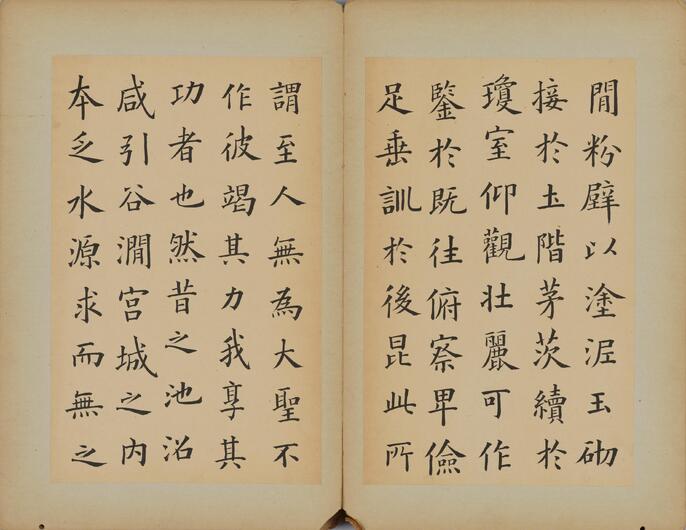 閒粉壁以塗泥玉砌
接於土階茅茨續於
瓊室仰觀壯麗可作
鑒於既往俯察卑儉
足垂訓於後昆此所
謂至人無為大聖不
作彼竭其力我享其
功者也然昔之池沼
咸引谷澗宮城之內
本乏水源求而無之